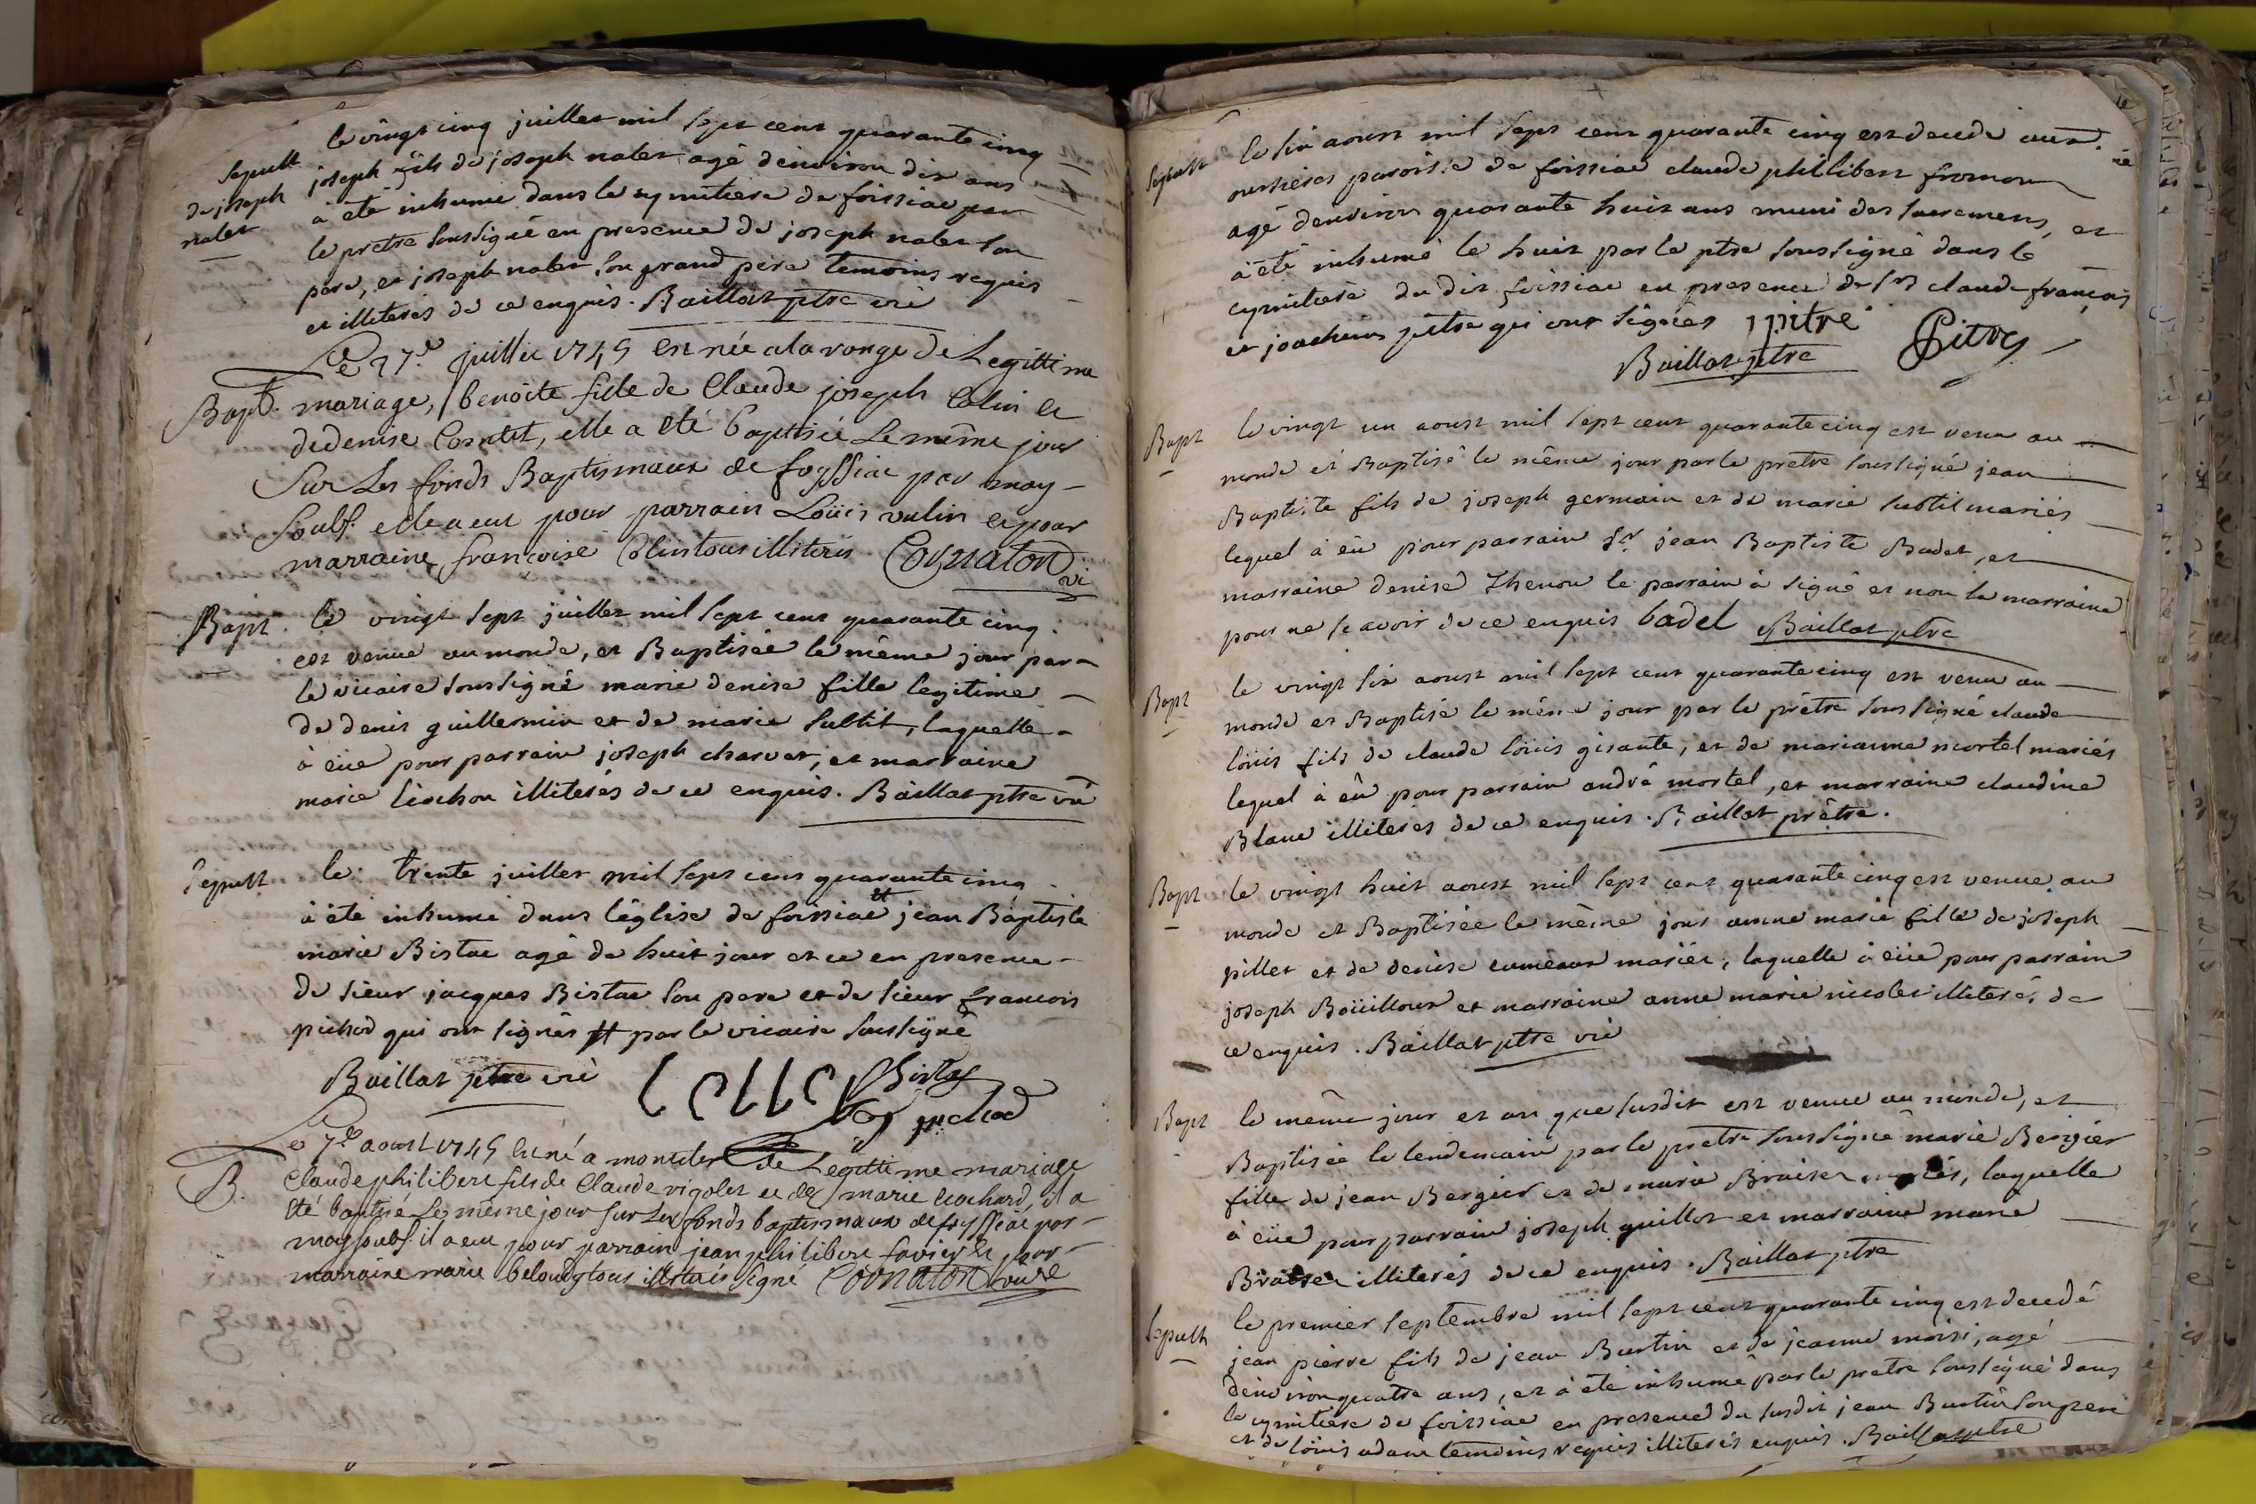 le vingt cinq juillet mil sept cent quarante cinq
Sepult joseph fils de joseph nalet agé denviron dix ans
de joseph à été inhumé dans le cymitiere de foissiac par
nalet le pretre soussigné en presence de joseph nalet son
pere, et joseph nalet son grand pere temoins requis
et illiterés de ce enquis. Baillat ptre vic
Le 27.e juillie 1745 est née a la vange de Legittime
Bapt. mariage, benoite fille de Claude joseph Colin et
de denise Corntet, elle a eté baptisée Le même jour
Sur Les fonds Baptismaux de foyssiac par moy
Soubs. elle a eut pour parrain Loüis vulin et pour
marraine françoise Colin tous illiterés Cognaton
vi
Bapt. le vingt sept juillet mil sept cent quarante cinq
est venue au monde, et Baptisée le même jour par
le vicaire soussigné marie denise fille legitime
de denis guillermin et de marie subtil, laquelle
à eüe pour parrain joseph charvet, et marraine
marie liochon illiterés de ce enquis. Baillat ptre vic
Sepult le trente juillet mil sept cens quarante cinq
à été inhumé dans léglise de foissiac # jean Baptiste
marie Bistac agé de huit jour et ce en presence
de sieur jacques Bistac son pere et de sieur francois
pichod qui ont signés # par le vicaire soussigné
Baillat ptre vic Bistac
pichod
Le 7e aout 1745 est né a monde de Legittime mariage
B. Claude philibert fils de Claude rigolet et de marie Cochard, il a
été baptisé Le même jour sur Les fonds baptismaux de foyssiac par
moy soubs. il a eu pour parrain jean philibert favier et pour
marraine marie beloudy tous illiterés signé Cognaton vicre
Sepult le six aoust mil sept cent quarante cinq est decede aux
paroisse de foissiac claude philibert fromon
agé denviron quarante huit ans muni des sacremens, et
à été inhumé le huit par le ptre soussigné dans le
cymitiere du dit foissiac en presence de Srs claude françois
et joachim pitre qui ont signés jpitre CPitre
Baillat ptre
Bapt le vingt un aoust mil sept cent quarante cinq est venu au
monde et Baptisé le même jour par le pretre soussigné jean
Baptiste fils de joseph germain et de marie subtil mariés
lequel à eü pour parrain Sr jean Baptiste Badet, et
marraine denise Thenon le parrain à signé et non la marraine
pour ne scavoir de ce enquis badel Baillat ptre
Bapt le vingt six aoust mil sept cent quarante cinq est venu au
monde et Baptisé le même jour par le prêtre soussigné claude
loüis fils de claude loüis girante, et de marianne mortel mariés
lequel à eü pour parrain andré mortel, et marraine claudine
Blanc illiterés de ce enquis. Baillat prêtre.
Bapt le vingt huit aoust mil sept cent quarante cinq est venue au
monde et Baptisée le même jour anne marie fille de joseph
pillet et de denise cumeaux mariés, laquelle à eüe pour parrain
joseph Boüilloux et marraine anne marie nicolet illiterés de
ce enquis. Baillat ptre vic
Bapt le même jour et an que susdit est venue au monde, et
Baptisée le lendemain par le pretre soussigné marie Bergier
fille de jean Bergier et de marie Braiser mariés, laquelle
à eüe pour parrain joseph guillot et marraine marie
Braiser illiterés de ce enquis. Baillat ptre
Sepult le premier septembre mil sept cent quarante cinq est decedé
jean pierre fils de jean Burtin et de jeanne moisi, agé
denviron quatre ans, et à été inhumé par le pretre soussigné dans
le cymitiere de foissiac en presence du susdit jean Burtin son pere
et de loüis adam temoins requis illiterés enquis. Baillat ptre